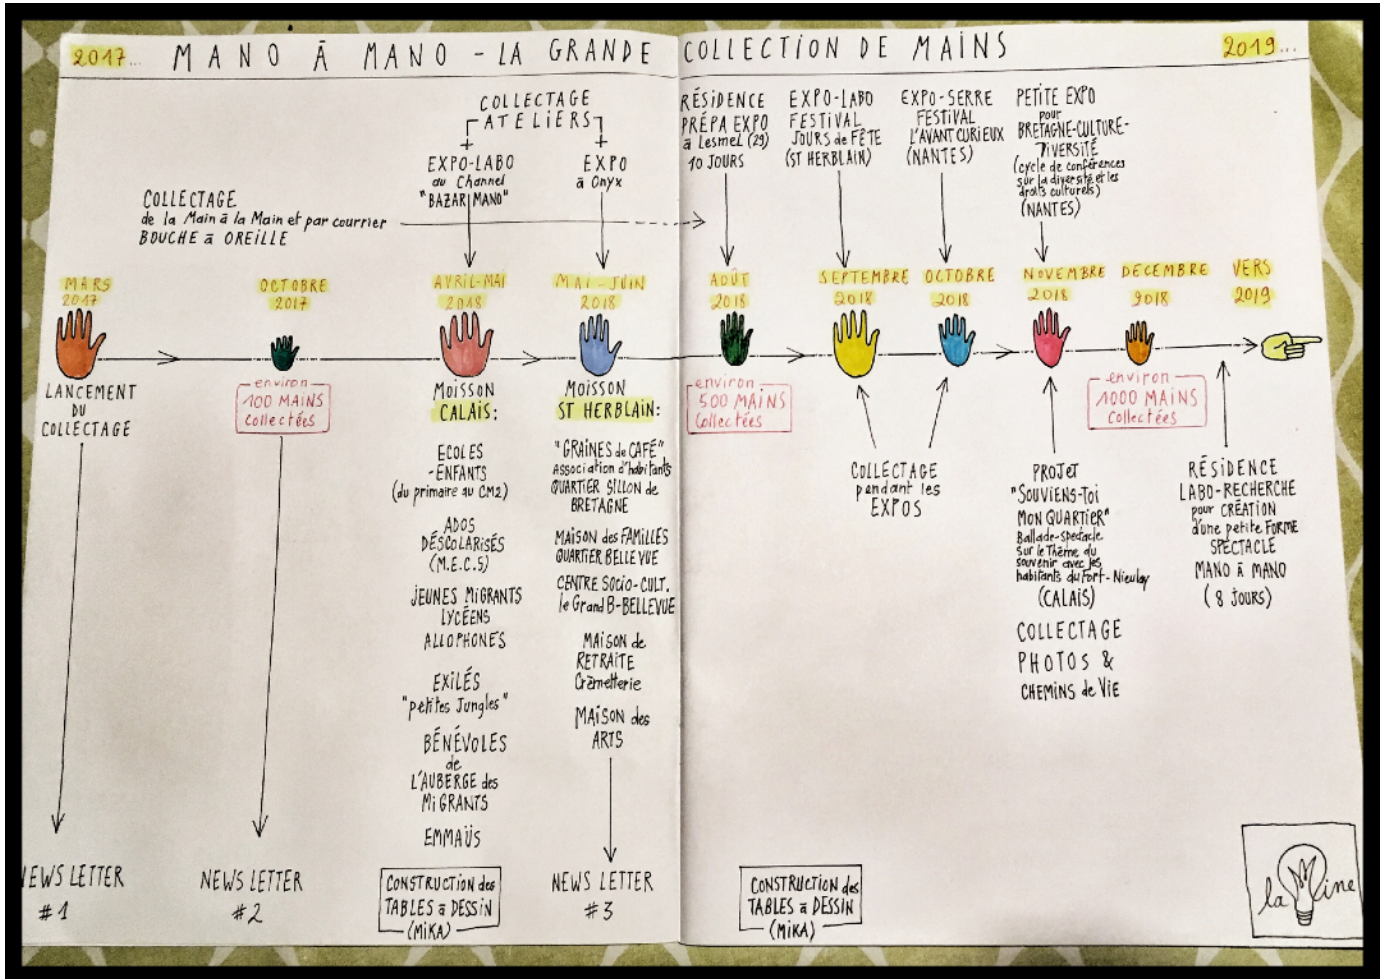 2017... MANO Ā MANO - LA GRANDE COLLECTION DE MAINS 2019...
COLLECTAGE
ATELIERS
+
EXPO-LABO
au Channel
"BAZAR MANO"
+
EXPO
ā Onyx
RÉSIDENCE
PRÉPA EXPO
à Lesmel (29)
10 JOURS
EXPO-LABO
FESTIVAL
JOURS de FÊTE
(ST HERBLAIN)
EXPO-SERRE
FESTIVAL
L'AVANT CURIEUX
(NANTES)
PETITE EXPO
pour
BRETAGNE-CULTURE-
DIVERSITÉ
(cycle de conférences
sur la diversité et les
droits culturels)
(NANTES)
COLLECTAGE
de la Main ā la Main et par courrier
BOUCHE ā OREILLE
MARS
2017
OCTOBRE
2017
AVRIL-MAI
2018
MAI-JUIN
2018
AOÛT
2018
SEPTEMBRE
2018
OCTOBRE
2018
NOVEMBRE
2018
DECEMBRE
2018
VERS
2019
LANCEMENT
DU
COLLECTAGE
environ
100 MAINS
collectées
MOISSON
CALAIS:
ECOLES
-ENFANTS
(du primaire au CM2)
ADOS
DÉSCOLARISÉS
(M.E.C.S)
JEUNES MIGRANTS
LYCÉENS
ALLOPHONES
EXILÉS
"petites Jungles"
BÉNÉVOLES
de
L'AUBERGE des
MIGRANTS
EMMAÜS
MOISSON
ST HERBLAIN:
"GRAINES de CAFÉ"
Association d'habitants
QUARTIER SILLON de
BRETAGNE
MAISON des FAMILLES
QUARTIER BELLEVUE
CENTRE SOCIO-CULT.
le Grand B-BELLEVUE
MAISON de
RETRAITE
Crāmetterie
MAISON des
ARTS
environ
500 MAINS
collectées
COLLECTAGE
pendant les
EXPOS
PROJET
"SOUVIENS-TOI
MON QUARTIER"
Ballade-spectacle
sur le Thème du
souvenir avec les
habitants du Fort-Nieulay
(CALAIS)
COLLECTAGE
PHOTOS &
CHEMINS de VIE
environ
1000 MAINS
collectées
RÉSIDENCE
LABO-RECHERCHE
pour CRÉATION
d'une petite FORME
SPECTACLE
MANO Ā MANO
(8 JOURS)
NEWS LETTER
#1
NEWS LETTER
#2
CONSTRUCTION des
TABLES ā DESSIN
(MIKA)
NEWS LETTER
#3
CONSTRUCTION des
TABLES ā DESSIN
(MIKA)
la Mine